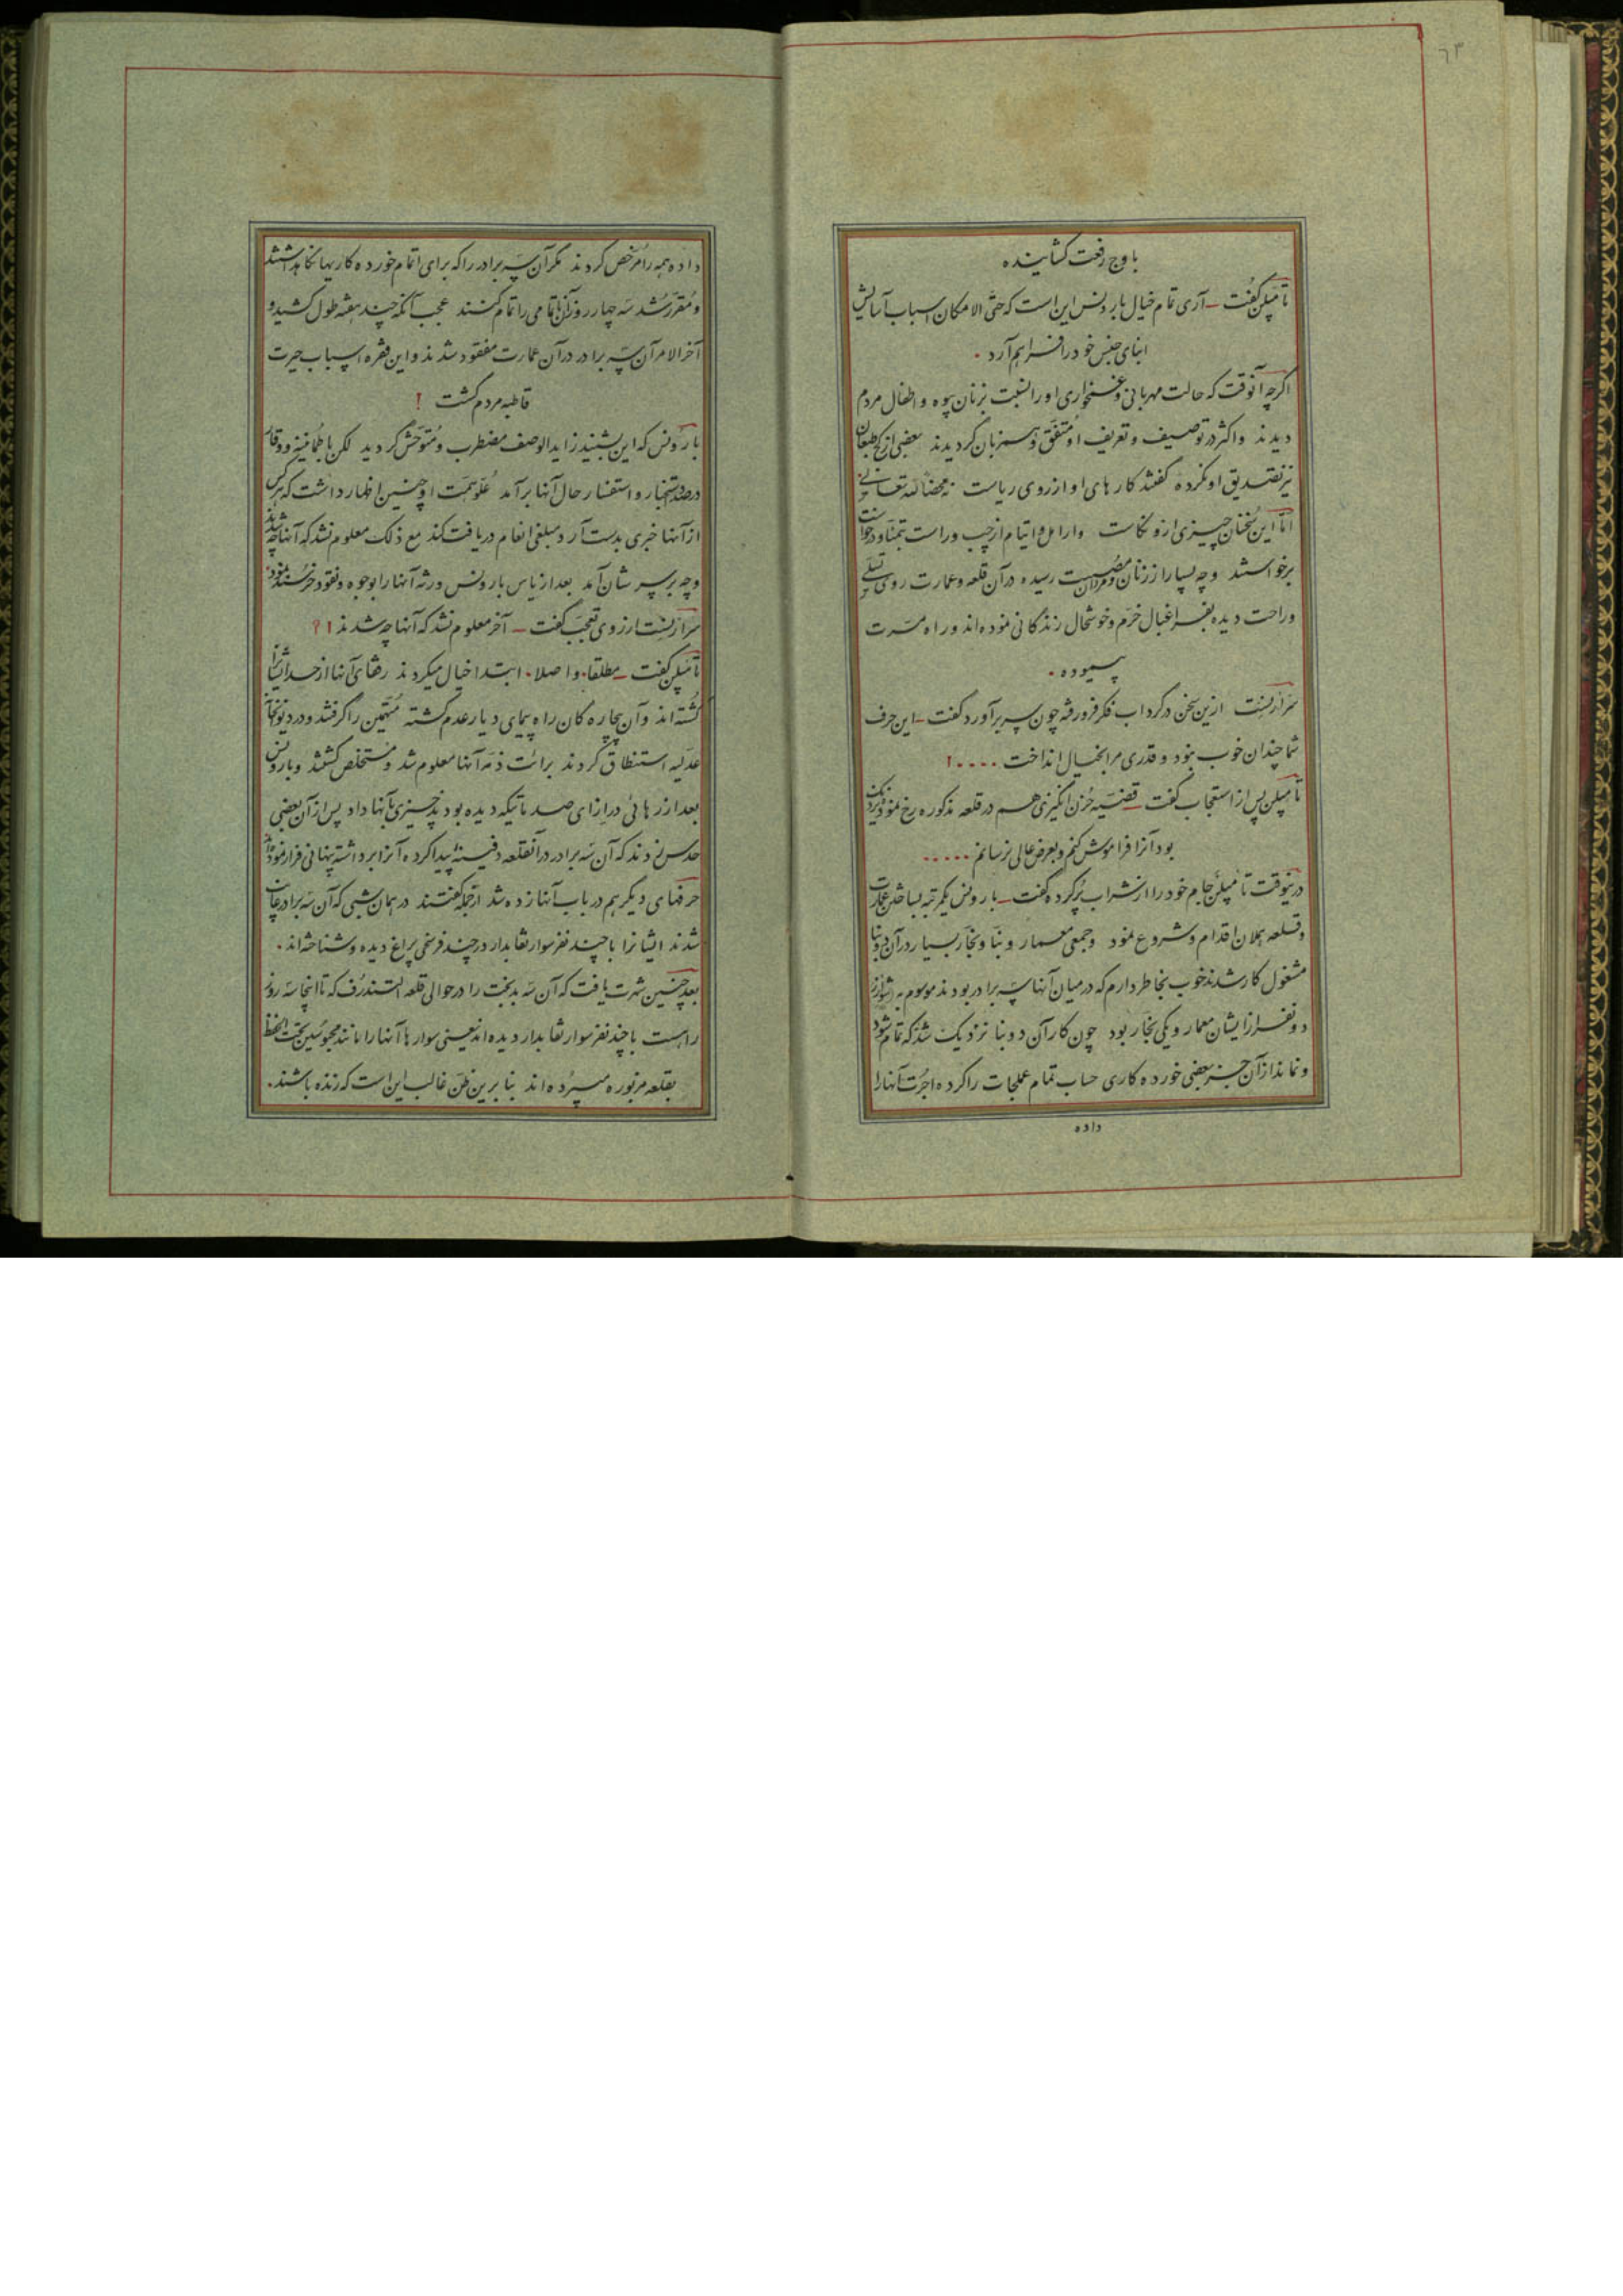 ٦٣
باوج رفعت کشاینده
تامپلن گفت ـ آری تمام خیال بارونس این است که حتی الامکان اسباب آسایش
ابنای جنس خود را فراهم آرد ۰
اگرچه آنوقت که حالت مهربانی و غمخواری او را نسبت بزنان بیوه و اطفال مردم
دیدند و اکثر در توصیف و تعریف او متفق و همزبان گردیدند بعضی از کج طبعان
نیز تصدیق او نکرده گفتند کارهای او از روی ریاست نه محضا لله تعالی
اما این سخنان چیزی ازو نکاست و ارامل و ایتام از چپ و راست بتمنا و درخواست
برخواستند و چه بسیار از زنان و مردان مصیبت رسیده در آن قلعه و عمارت روی تسلی
و راحت دیده بفراغبال خرم و خوشحال زندگانی نموده‌اند و راه مسرت
پیموده ۰
سر ارنست ازین سخن در گرداب فکر فرو رفته چون سر برآورد گفت ـ این حرف
شما چندان خوب نبود و قدری مرا بخیال انداخت ۰۰۰۰!
تامپلن پس از استعجاب گفت ـ قضیه حزن انگیزی هم در قلعه مذکوره رخ نمود نزدیک
بود آنرا فراموش کنم و بعرض عالی نرسانم ۰۰۰۰۰
درینوقت تامپلن جام خود را از شراب پر کرده گفت ـ بارونس یکمرتبه بساختن عمارت
و قلعه بملان اقدام و شروع نمود و جمعی معمار و بنا و نجار بسیار در آن دو بنا
مشغول کار شدند خوب بخاطر دارم که در میان آنها سه برادر بودند موسوم به
دو نفر از ایشان معمار و یکی نجار بود چون کار آن دو بنا نزدیک شد که تمام شود
و نماند از آن جز بعضی خورده کاری حساب تمام عملجات را کرده اجرت آنها را
داده
داده همه را مرخص کردند مگر آن سه برادر را که برای اتمام خورده کاریها نگاهداشتند
و مقرر شد سه چهار روز آن تمامی را تمام کنند عجب آنکه چند هفته طول کشید و
آخر الامر آن سه برادر در آن عمارت مفقود شدند و این فقره اسباب حیرت
قاطبه مردم گشت !
بارونس که این بشنید زاید الوصف مضطرب و متوحش گردید لکن با طمانینه و وقار
درصدد استخبار و استفسار حال آنها برآمد علو همت او چنین اظهار داشت که هر کس
از آنها خبری بدست آرد مبلغی انعام دریافت کند مع ذلک معلوم نشد که آنها چه شدند
و چه بر سر شان آمد بعد از یاس بارونس ورثه آنها را بوجوه و نقود خرسند نمود ۰
سر ارنست از روی تعجب گفت ـ آخر معلوم نشد که آنها چه شدند !؟
تامپلن گفت ـ مطلقا ۰ و اصلا ۰ ابتدا خیال میکردند رفقای آنها از حسد ایشانرا
کشته‌اند و آن بیچاره‌گان راه پیمای دیار عدم گشته متهمین را گرفتند و در دیوانخانه
عدلیه استنطاق کردند برائت ذمه آنها معلوم شد و مستخلص گشتند و بارونس
بعد از رهائی در ازای صدماتیکه دیده بودند چیزی بآنها داد پس از آن بعضی
حدس زدند که آن سه برادر در آنقلعه دفینه پیدا کرده آنرا برداشته پنهانی فرار نموده‌اند
حرفهای دیگر هم در باب آنها زده شد از جمله گفتند در همان شبی که آن سه برادر غایب
شدند ایشانرا با چند نفر سوار نقابدار در چند فرسخی پراغ دیده و شناخته‌اند ۰
بعد چنین شهرت یافت که آن سه بدبخت را در حوالی قلعه التندرف که تا اینجا سه روز
راهست با چند نفر سوار نقابدار دیده‌اند یعنی سوارها آنها را مانند محبوسین تحت الحفظ
بقلعه مزبوره میبرده‌اند بنا برین ظن غالب این است که زنده باشند ۰